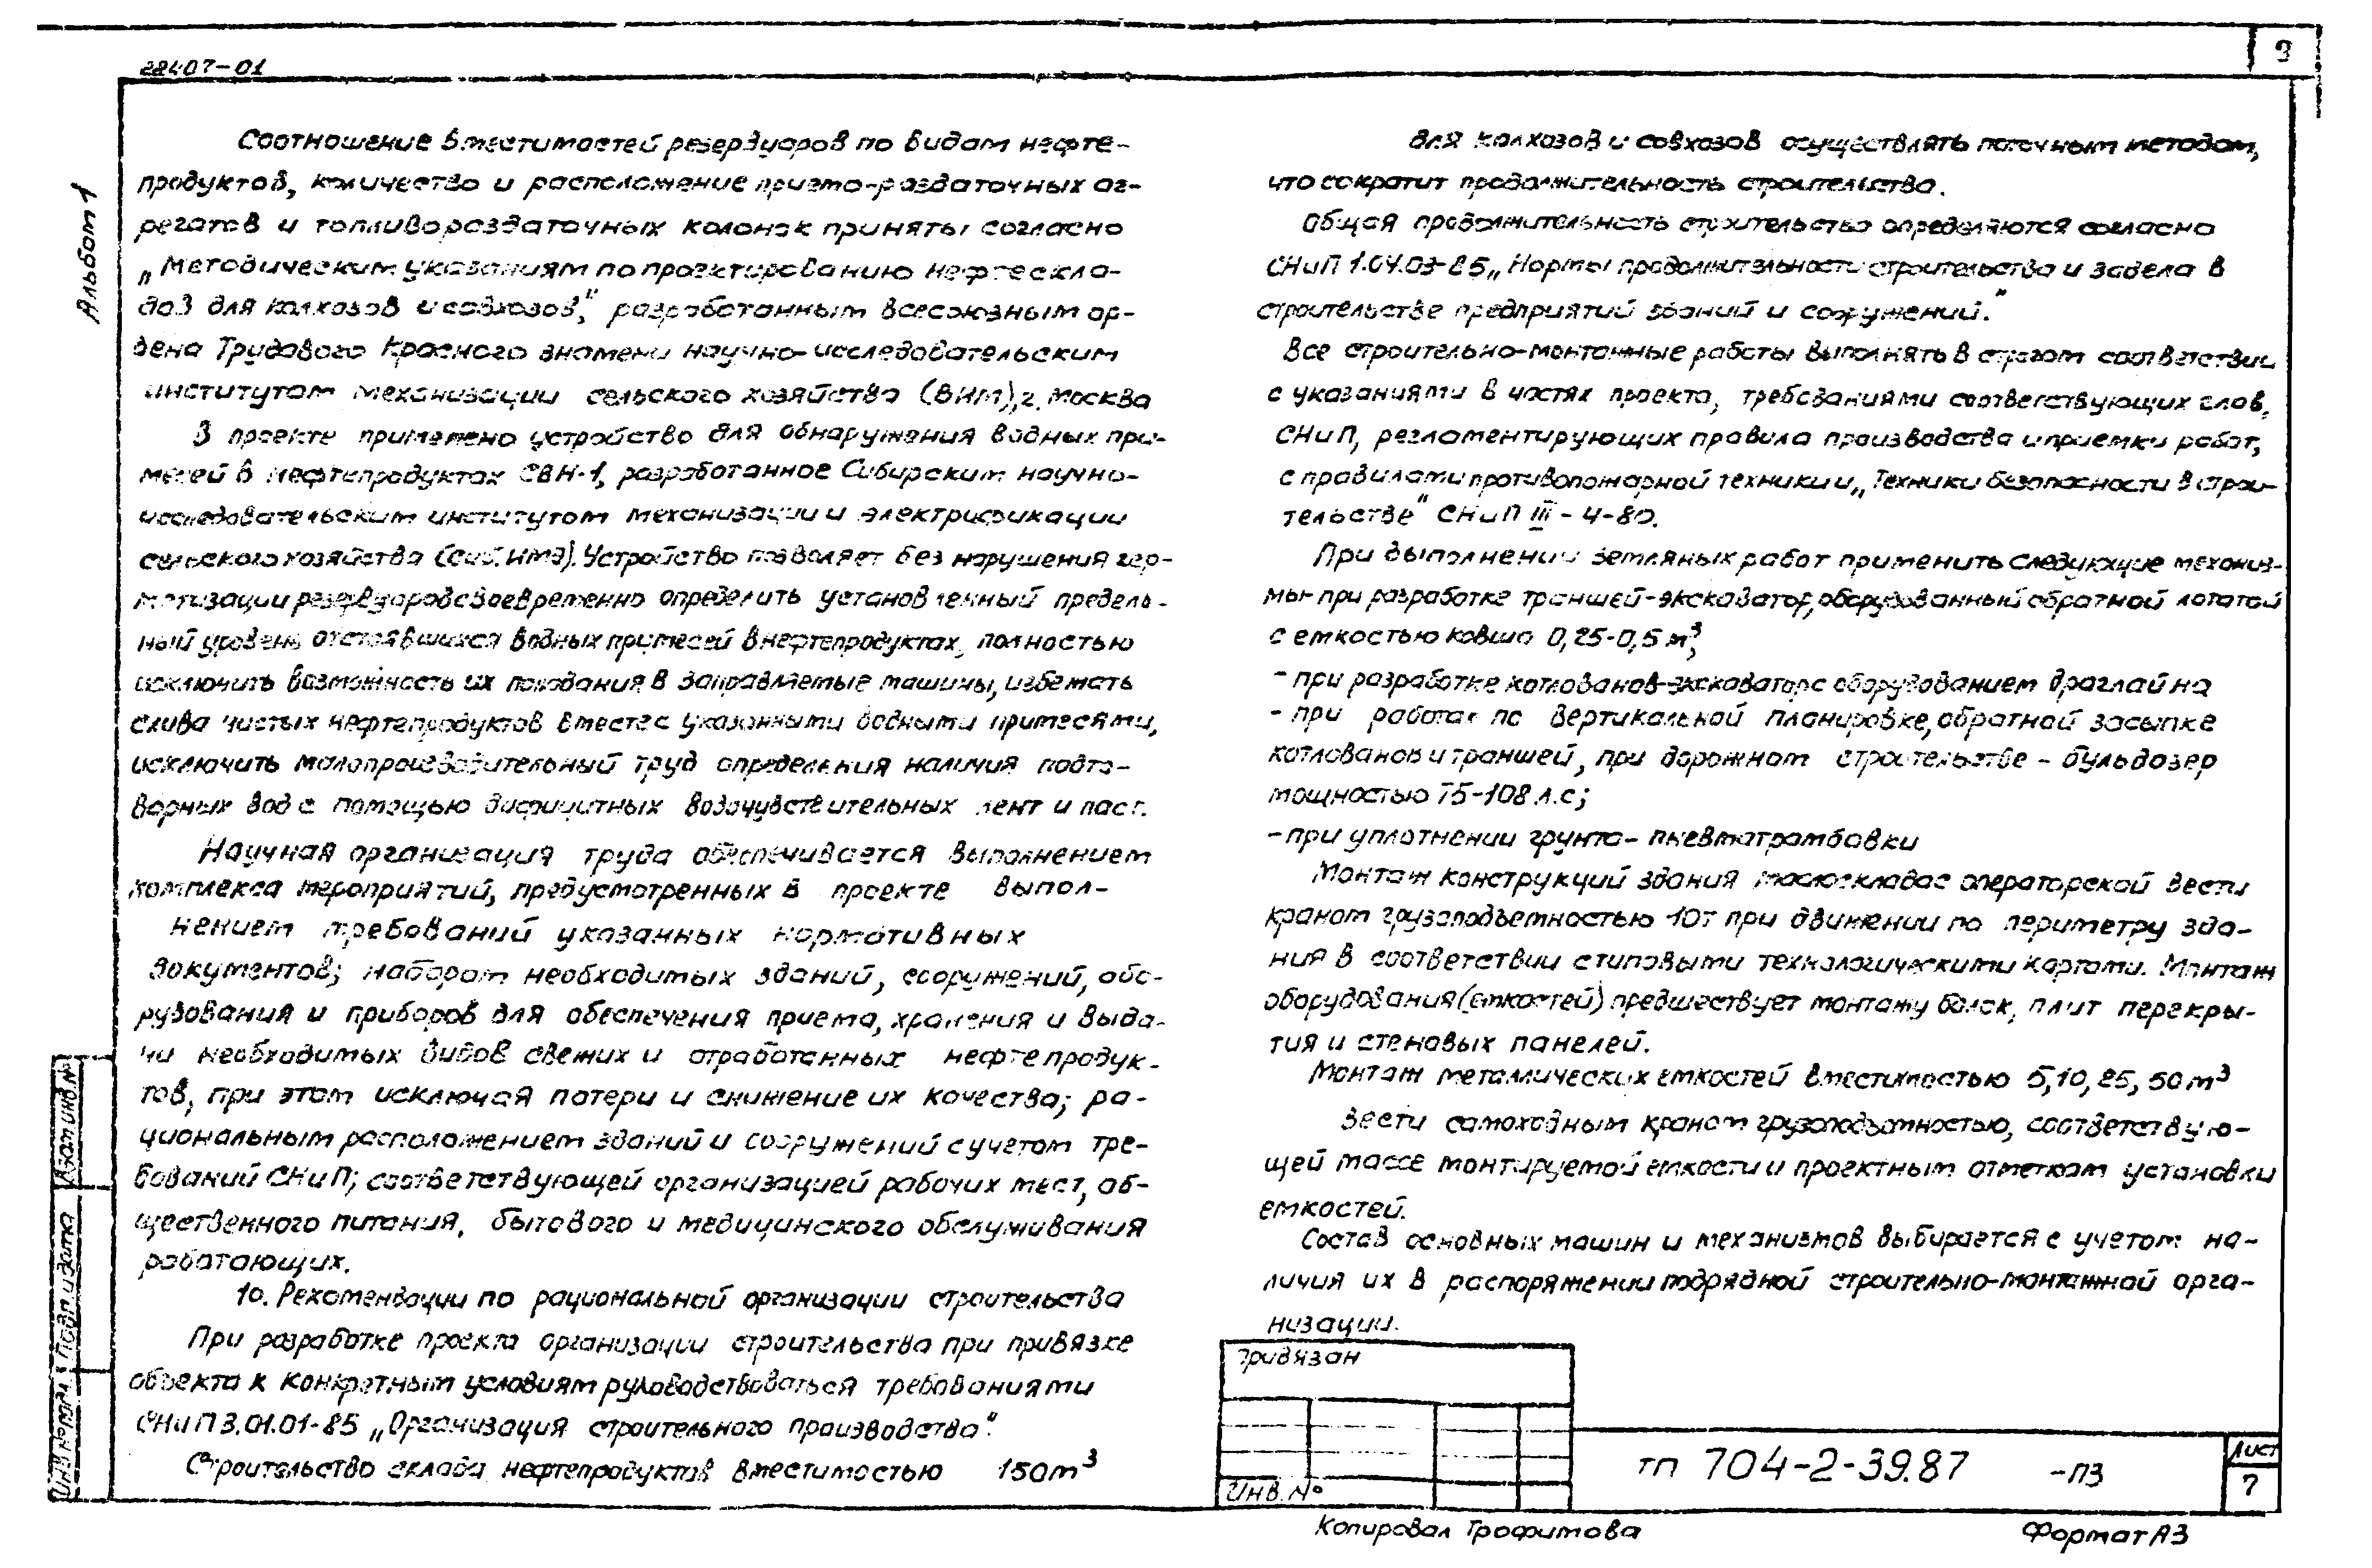 22407-01
9
Альбом 1
Соотношение вместимостей резервуаров по видам нефте-
продуктов, количество и расположение приемо-раздаточных аг-
регатов и топливораздаточных колонок приняты согласно
„Методическим указаниям по проектированию нефтескла-
дов для колхозов и совхозов“, разработанным всесоюзным ор-
дена Трудового Красного знамени научно-исследовательским
институтом механизации сельского хозяйства (ВИМ), г. Москва
В проекте применено устройство для обнаружения водных при-
месей в нефтепродуктах СВН-1, разработанное Сибирским научно-
исследовательским институтом механизации и электрификации
сельского хозяйства (Сиб. ИМЭ). Устройство позволяет без нарушения гер-
метизации резервуаров своевременно определить установленный предель-
ный уровень отстоявшихся водных примесей в нефтепродуктах, полностью
исключить возможность их попадания в заправляемые машины, избежать
слива чистых нефтепродуктов вместе с указанными водными примесями,
исключить малопроизводительный труд определения наличия подто-
варных вод с помощью дифицитных водочувствительных лент и паст.
Научная организация труда обеспечивается выполнением
комплекса мероприятий, предусмотренных в проекте выпол-
нением требований указанных нормативных
документов; набором необходимых зданий, сооружений, обо-
рудования и приборов для обеспечения приема, хранения и выда-
чи необходимых видов свежих и отработанных нефтепродук-
тов, при этом исключая потери и снижение их качества; ра-
циональным расположением зданий и сооружений с учетом тре-
бований СНиП; соответствующей организацией рабочих мест, об-
щественного питания, бытового и медицинского обслуживания
работающих.
10. Рекомендации по рациональной организации строительства
При разработке проекта организации строительства при привязке
объекта к конкретным условиям руководствоваться требованиями
СНиП 3.01.01-85 „Организация строительного производства“.
Строительство склада нефтепродуктов вместимостью 150 м³
для колхозов и совхозов осуществлять поточным методом,
что сократит продолжительность строительства.
Общая продолжительность строительства определяются согласно
СНиП 1.04.03-85 „Нормы продолжительности строительства и задела в
строительстве предприятий зданий и сооружений“.
Все строительно-монтажные работы выполнять в строгом соответствии
с указаниями в частях проекта, требованиями соответствующих глав,
СНиП, регламентирующих правила производства и приемки работ,
с правилами противопожарной техники и „Техники безопасности в строи-
тельстве“ СНиП III-4-80.
При выполнении земляных работ применить следующие механиз-
мы- при разработке траншей-экскаватор, оборудованный обратной лопатой
с емкостью ковша 0,25-0,5 м³;
- при разработке котлованов-экскаваторс оборудованием драглайна
- при работах по вертикальной планировке, обратной засыпке
котлованов и траншей, при дорожном строительстве - бульдозер
мощностью 75-108 л.с;
- при уплотнении грунта- пневматрамбовки
Монтаж конструкций здания маслоскладас операторской вести
краном грузоподъемностью 10т при движении по периметру зда-
ния в соответствии с типовыми технологическими картами. Монтаж
оборудования (емкостей) предшествует монтажу балок, плит перекры-
тия и стеновых панелей.
Монтаж металлических емкостей вместимостью 5, 10, 25, 50 м³
вести самоходным краном грузоподъемностью, соответствую-
щей массе монтируемой емкости и проектным отметкам установки
емкостей.
Состав основных машин и механизмов выбирается с учетом на-
личия их в распоряжении подрядной строительно-монтажной орга-
низации.
Привязан
Инв. №
тп 704-2-39.87 -ПЗ
Лист
7
Взам инв. №
Подп. и дата
Инв. № подл.
Копировал Трофимова
Формат А3